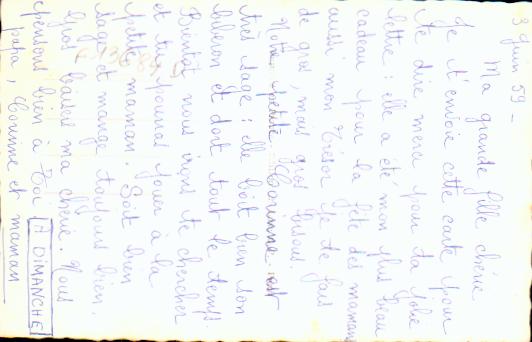 3 Juin 59 -
Ma grande fille chérie
Je t'envoie cette carte pour
te dire merci pour ta jolie
lettre : elle a été mon plus beau
cadeau pour la fête des mamans
aussi mon trésor je te fais
de gros, mais gros bisous.
Notre petite Corinne est
très sage : elle boit bien son
biberon et dort tout le temps.
Bientôt nous irons te chercher
et tu pourras jouer à la
petite maman. Soit bien
sage et mange toujours bien.
Gros baisers ma chérie. Nous
pensons bien à Toi
A DIMANCHE
papa, Corinne et maman